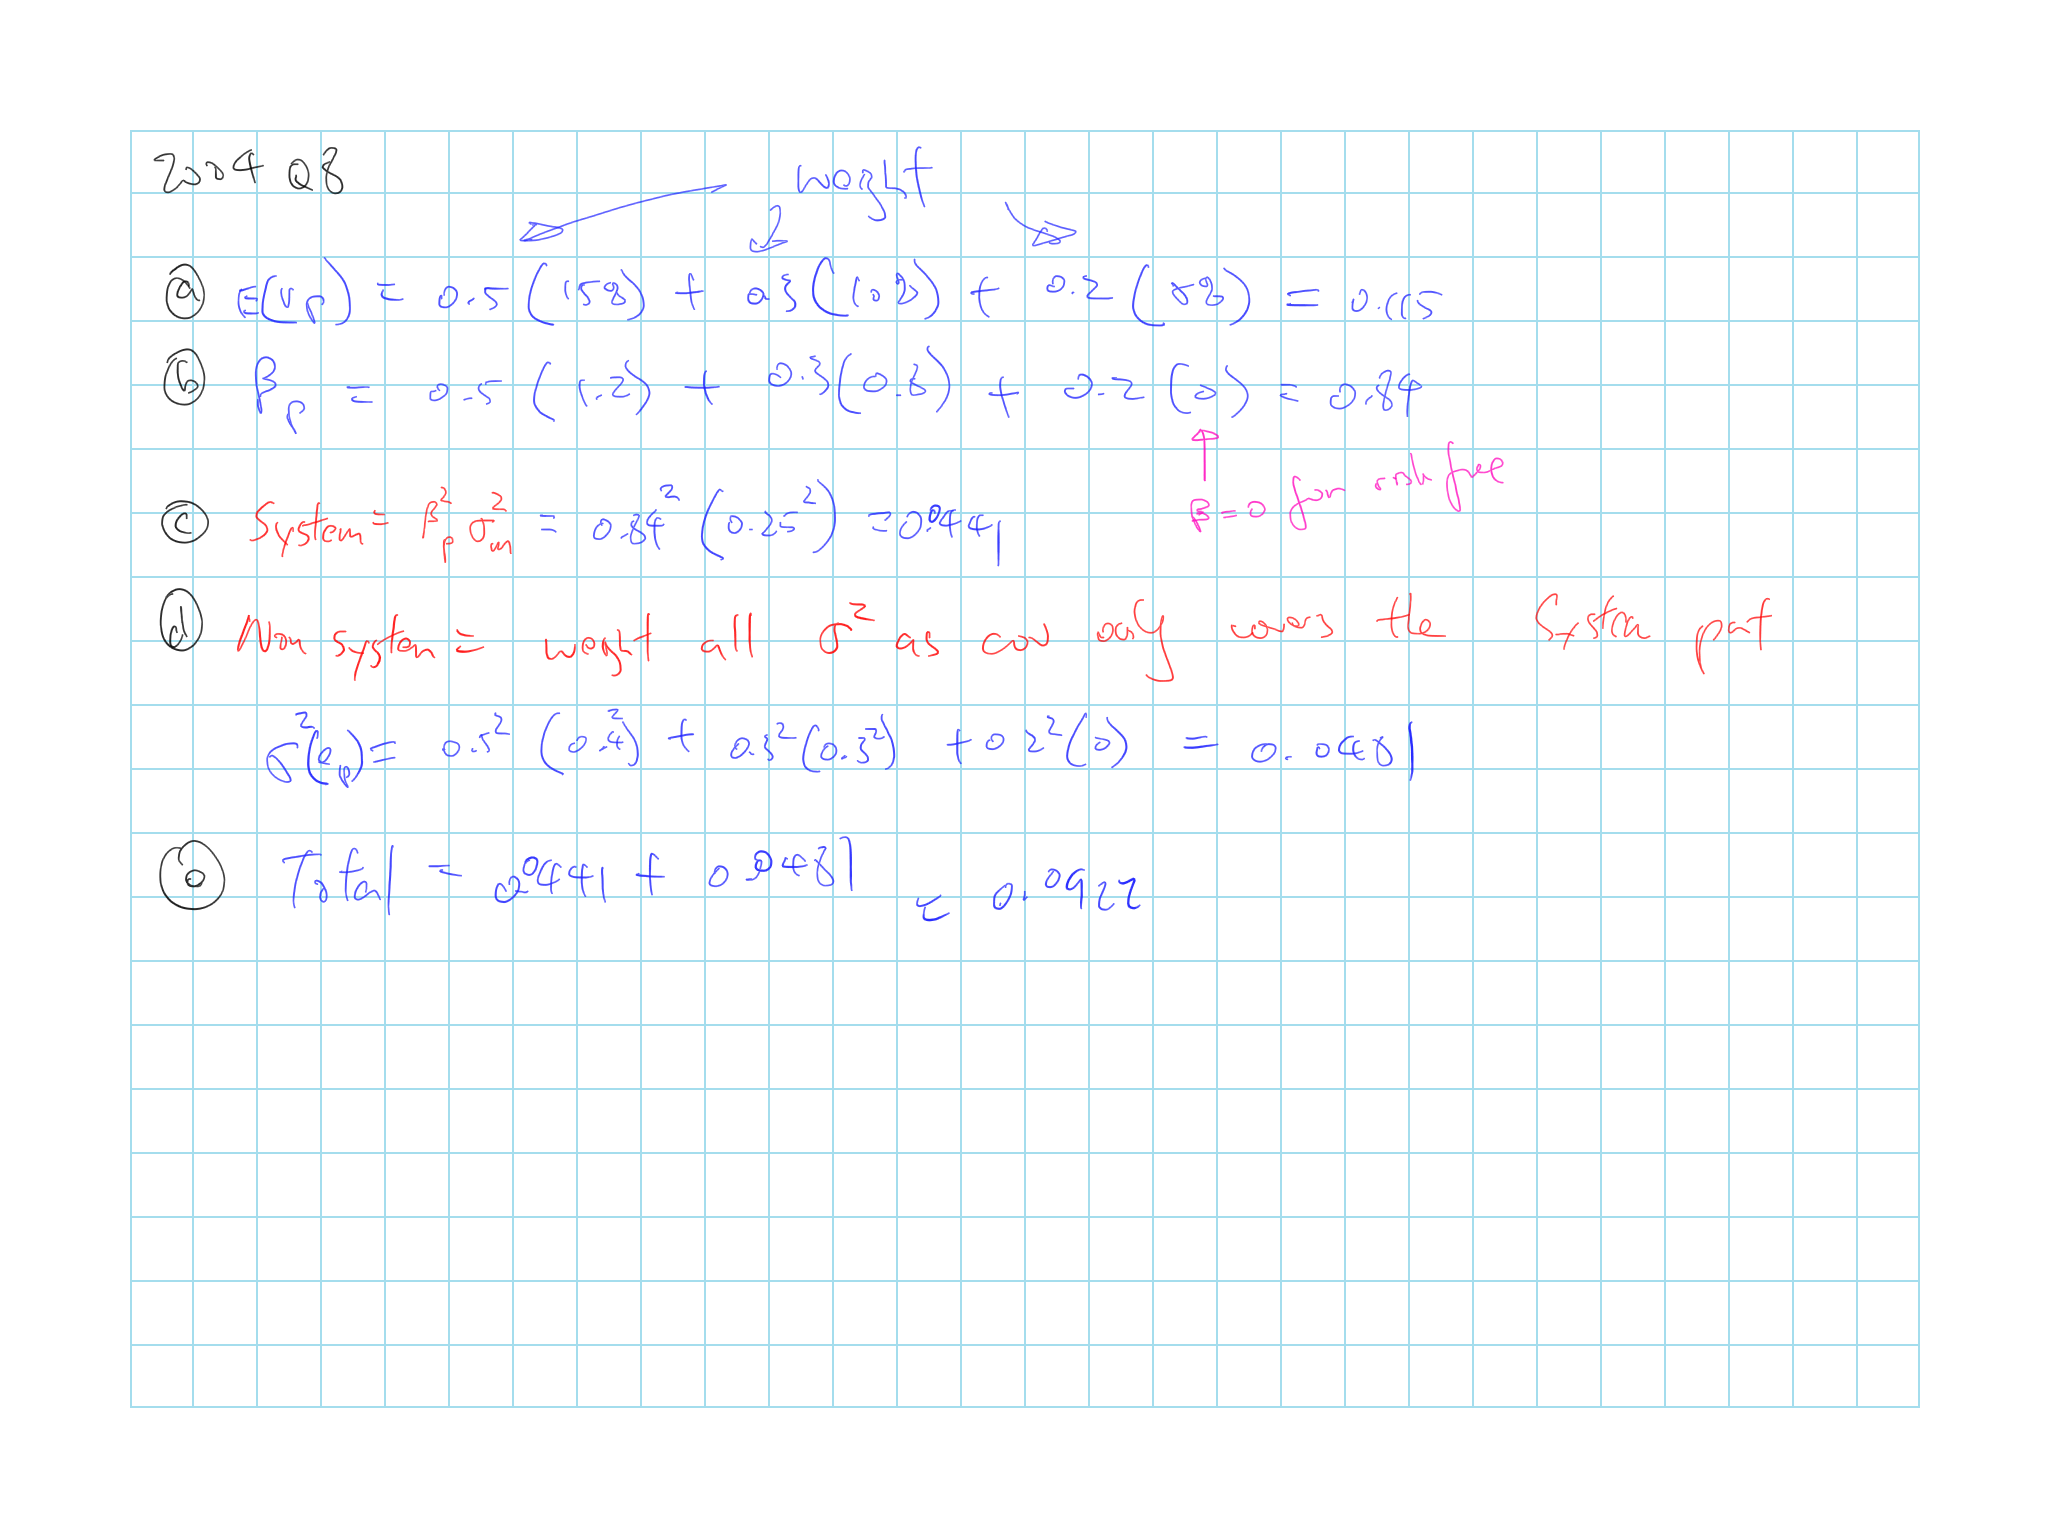 2004 Q8
weight
(a) E(rp) = 0.5 (15%) + 0.3 (10%) + 0.2 (5%) = 0.115
(b) βp = 0.5 (1.2) + 0.3 (0.8) + 0.2 (0) = 0.84
β = 0 for risk free
(c) System = βp² σm² = 0.84² (0.25²) = 0.0441
(d) Non system = weight all σ² as cov only covers the System part
σ²(ep) = 0.5² (0.4²) + 0.3² (0.3²) + 0.2² (0) = 0.0481
(b) Total = 0.0441 + 0.0481 = 0.0922